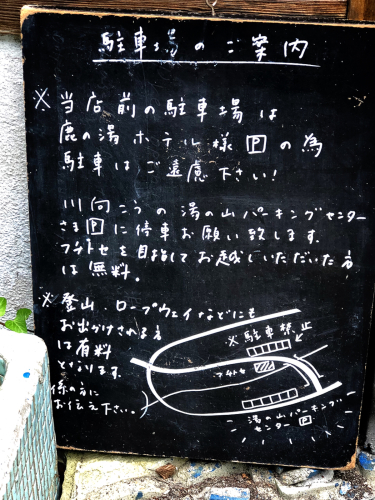 駐車場のご案内
※当店前の駐車場は
鹿の湯ホテル様Pの為
駐車はご遠慮下さい!
川向こうの湯の山パーキングセンター
さまPに停車お願い致します。
フチトセを目指してお越しいただいた方
は無料。
※登山、ロープウェイなどにも
お出かけされる方
は有料
となります。
係の方に
お伝え下さい。
※駐車禁止
フチトセ
湯の山パーキング
センターP